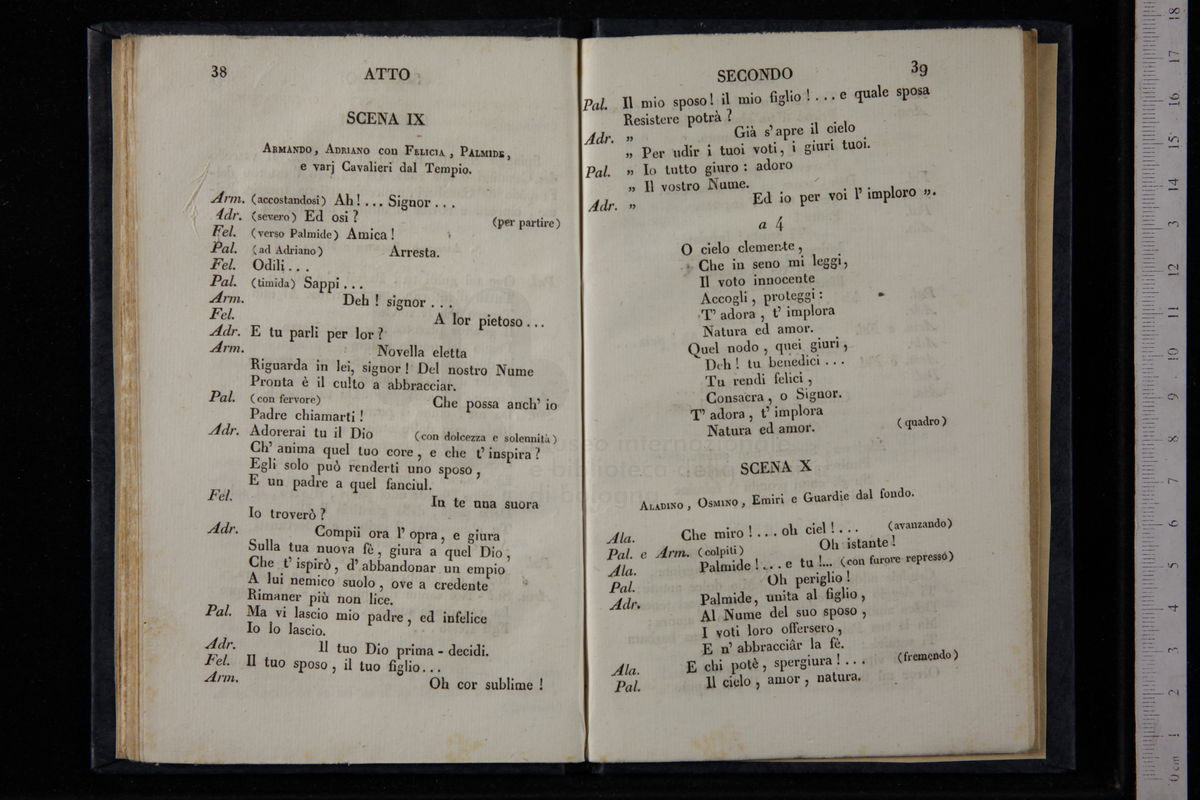 38 ATTO
SCENA IX
ARMANDO, ADRIANO con FELICIA, PALMIDE,
e varj Cavalieri del Tempio.
Arm. (accostandosi) Ah!... Signor...
Adr. (severo) Ed osi? (per partire)
Fel. (verso Palmide) Amica!
Pal. (ad Adriano) Arresta.
Fel. Odili...
Pal. (timida) Sappi...
Arm. Deh! signor...
Fel. A lor pietoso...
Adr. E tu parli per lor?
Arm. Novella eletta
Riguarda in lei, signor! Del nostro Nume
Pronta è il culto a abbracciar.
Pal. (con fervore) Che possa anch' io
Padre chiamarti!
Adr. Adorerai tu il Dio (con dolcezza e solennità)
Ch' anima quel tuo core, e che t' inspira?
Egli solo può renderti uno sposo,
E un padre a quel fanciul.
Fel. In te una suora
Io troverò?
Adr. Compii ora l' opra, e giura
Sulla tua nuova fè, giura a quel Dio,
Che t' ispirò, d' abbandonar un empio
A lui nemico suolo, ove a credente
Rimaner più non lice.
Pal. Ma vi lascio mio padre, ed infelice
Io lo lascio.
Adr. Il tuo Dio prima - decidi.
Fel. Il tuo sposo, il tuo figlio...
Arm. Oh cor sublime!
SECONDO 39
Pal. Il mio sposo! il mio figlio!... e quale sposa
Resistere potrà?
Adr. „ Già s' apre il cielo
„ Per udir i tuoi voti, i giuri tuoi.
Pal. „ Io tutto giuro: adoro
„ Il vostro Nume.
Adr. „ Ed io per voi l' imploro „.
a 4
O cielo clemente,
Che in seno mi leggi,
Il voto innocente
Accogli, proteggi:
T' adora, t' implora
Natura ed amor.
Quel nodo, quei giuri,
Deh! tu benedici...
Tu rendi felici,
Consacra, o Signor.
T' adora, t' implora
Natura ed amor. (quadro)
SCENA X
ALADINO, OSMINO, Emiri e Guardie dal fondo.
Ala. Che miro!... oh ciel!... (avanzando)
Pal. e Arm. (colpiti) Oh istante!
Ala. Palmide!... e tu!... (con furore represso)
Pal. Oh periglio!
Adr. Palmide, unita al figlio,
Al Nume del suo sposo,
I voti loro offersero,
E n' abbracciâr la fè.
Ala. E chi potè, spergiura!... (fremendo)
Pal. Il cielo, amor, natura.